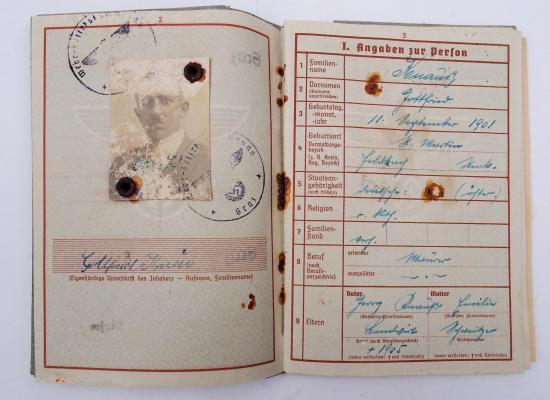 2
Gottfried
(Eigenhändige Unterschrift des Inhabers — Rufname, Familienname)
3
I. Angaben zur Person
1 Familien-
name
2 Vornamen
(Rufname
unterstreichen)
Gottfried
3 Geburtstag,
-monat,
-jahr
11. September 1901
4 Geburtsort
Verwaltungs-
bezirk
(z. B. Kreis,
Reg. Bezirk)
St. Martin
Feldbach
5 Staatsan-
gehörigkeit
(auch frühere)
deutsche (österr.)
6 Religion
r. kth.
7 Familien-
stand
verh.
8 Beruf
(nach
Berufs-
verzeichnis)
erlernter
Maurer
ausgeübter
9 Eltern
Vater Mutter
Georg Emilie
(Rufname, Familienname) (Rufname, Familienname)
Landwirt
+ 1905
(wenn verstorben: † und Sterbejahr) (wenn verstorben: † und Sterbejahr)